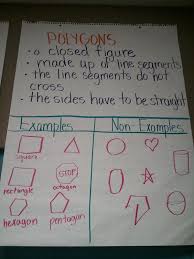 POLYGONS
• a closed figure
• made up of line segments
• the line segments do not
cross
• the sides have to be straight
Examples
Non-Examples
square
STOP
rectangle
octagon
hexagon
pentagon